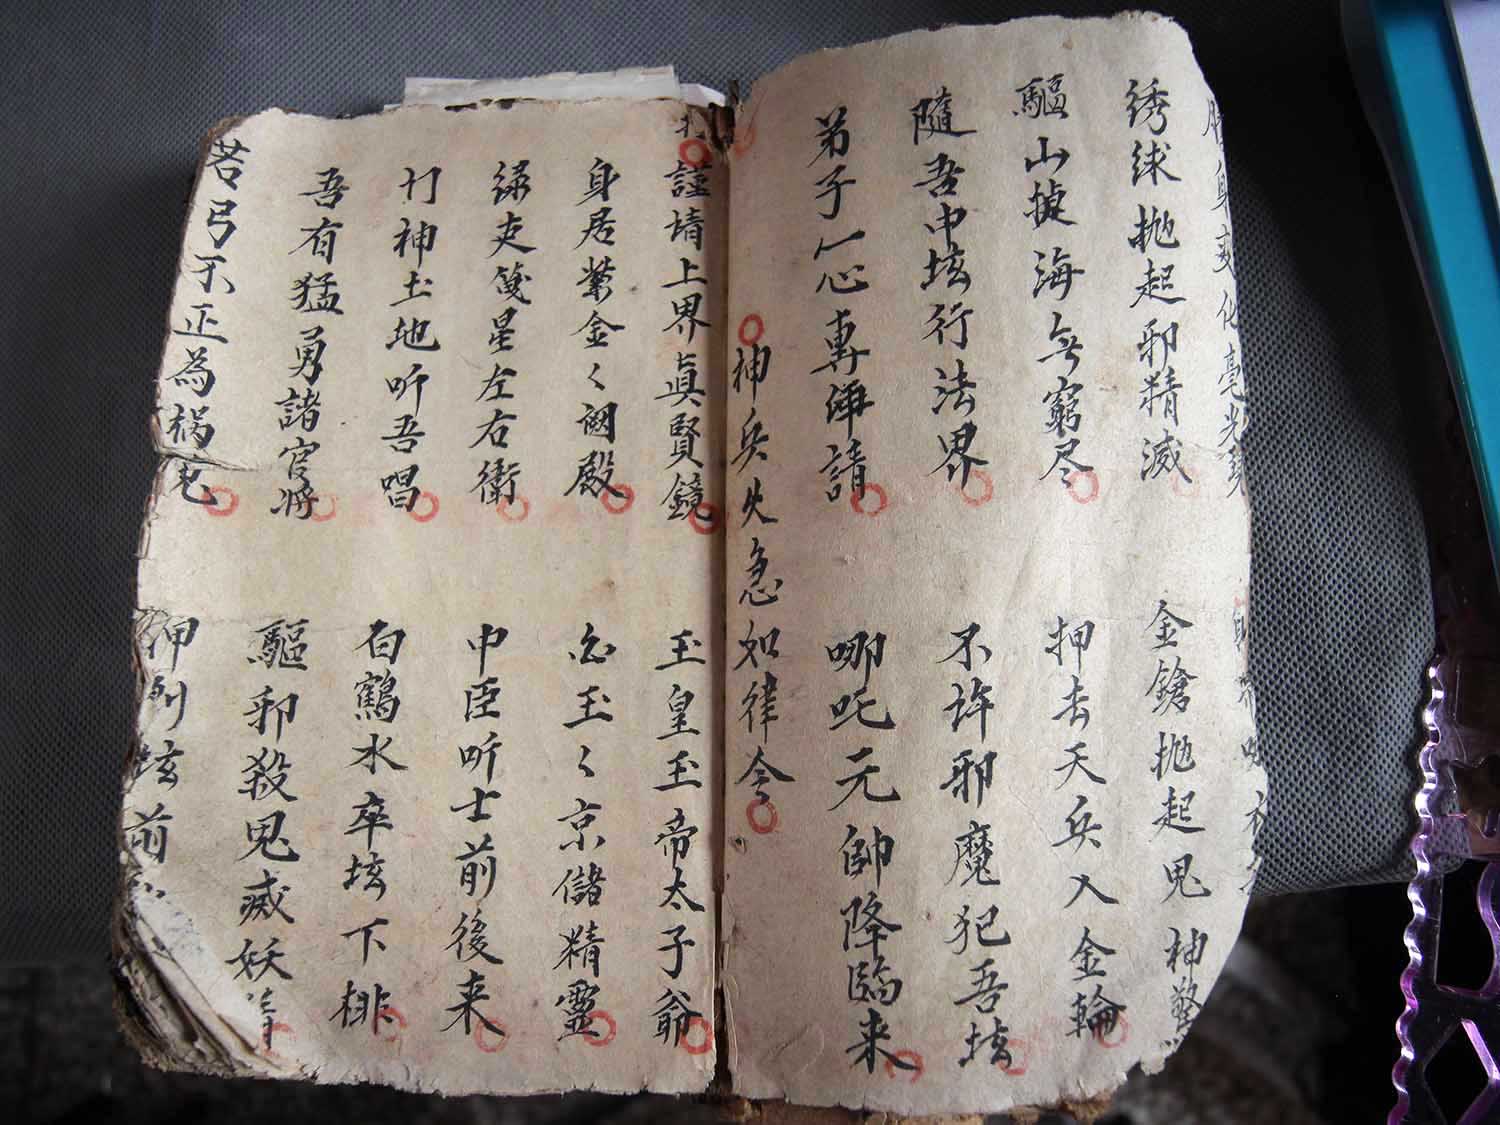 身变化毫光
綉球抛起邪精滅
金鎗抛起鬼神驚
驅山捷海無窮尽
押去天兵入金輪
隨吾中垓行法界
不許邪魔犯吾垓
弟子一心專俥請
哪吒元帥降臨来
神兵火急如律令
謹請上界真賢鏡
玉皇玉帝太子爺
身居紫金〻閣殿
白玉〻京儲精靈
绿吏箋星左右衛
中臣听士前後来
行神土地听吾唱
白鶴水卒垓下排
吾有猛勇諸官將
驅邪殺鬼滅妖精
若弓不正為禍
押到垓前